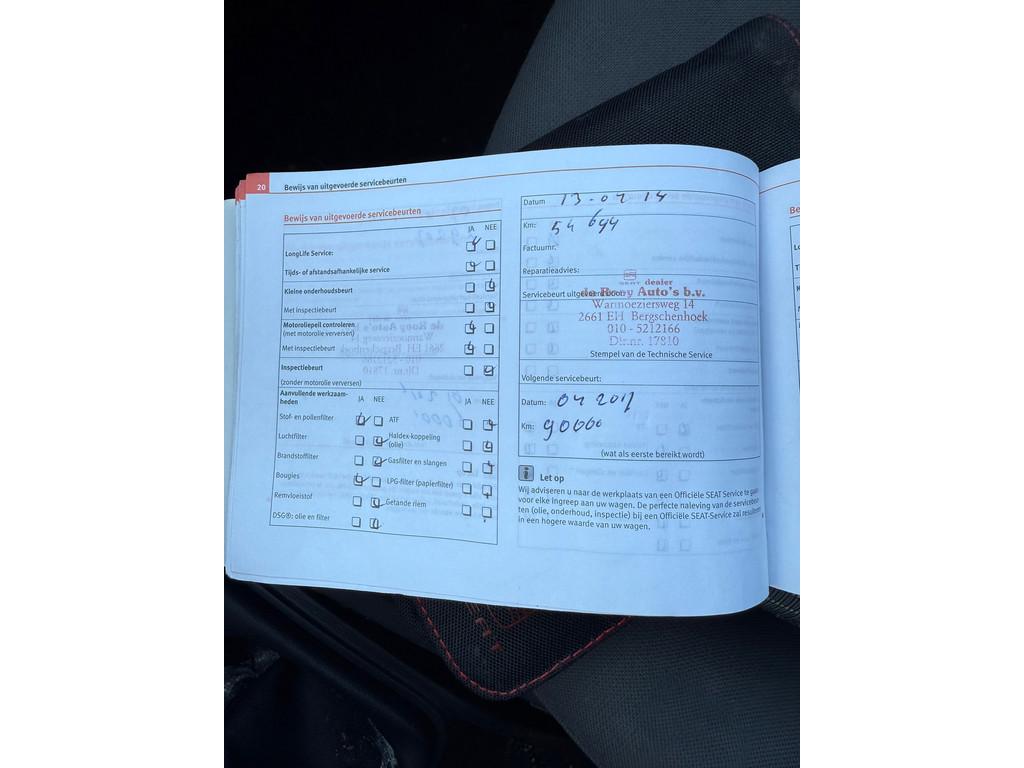 20 Bewijs van uitgevoerde servicebeurten
Bewijs van uitgevoerde servicebeurten
JA NEE
LongLife Service:
Tijds- of afstandsafhankelijke service
Kleine onderhoudsbeurt
Met inspectiebeurt
Motoroliepeil controleren
(met motorolie verversen)
Met inspectiebeurt
Inspectiebeurt
(zonder motorolie verversen)
Aanvullende werkzaam- JA NEE JA NEE
heden
Stof- en pollenfilter ATF
Luchtfilter Haldex-koppeling
(olie)
Brandstoffilter Gasfilter en slangen
Bougies LPG-filter (papierfilter)
Remvloeistof Getande riem
DSG®: olie en filter
Datum 13-04 14
Km: 54 694
Factuurnr.
Reparatieadvies:
SEAT dealer
Servicebeurt uitgevoerd
de Rooy Auto's b.v.
Warmoeziersweg 14
2661 EH Bergschenhoek
010 - 5212166
Dlr.nr. 17810
Stempel van de Technische Service
Volgende servicebeurt:
Datum: 04
Km: 90000
(wat als eerste bereikt wordt)
i Let op
Wij adviseren u naar de werkplaats van een Officiële SEAT Service te gaan
voor elke ingreep aan uw wagen. De perfecte naleving van de servicebeur-
ten (olie, onderhoud, inspectie) bij een Officiële SEAT-Service zal resulteren
in een hogere waarde van uw wagen.
Be